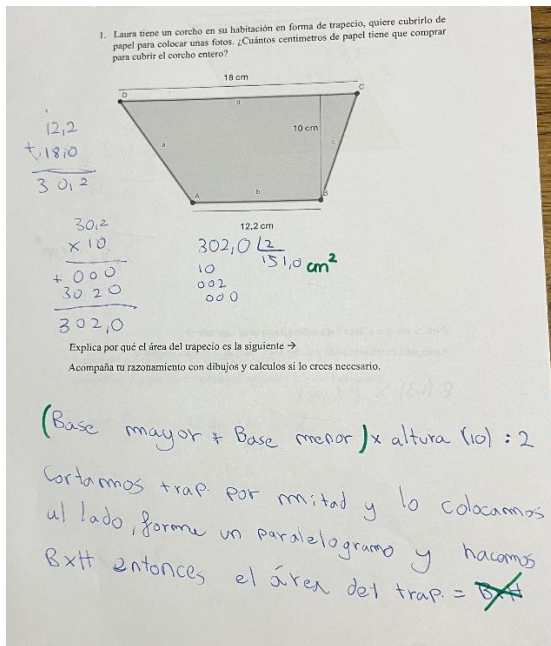 1. Laura tiene un corcho en su habitación en forma de trapecio, quiere cubrirlo de
papel para colocar unas fotos. ¿Cuántos centímetros de papel tiene que comprar
para cubrir el corcho entero?
18 cm
D
C
d
10 cm
a
c
A
b
B
12,2 cm
12,2
+ 18,0
30,2
30,2
x 10
+ 000
3020
302,0
302,0 2
10 151,0 cm²
002
000
Explica por qué el área del trapecio es la siguiente →
Acompaña tu razonamiento con dibujos y calculos si lo crees necesario.
(Base mayor + Base menor) x altura (10) : 2
Cortamos trap. por mitad y lo colocamos
al lado, forme un paralelogramo y hacemos
BxH entonces el área del trap. = BxH